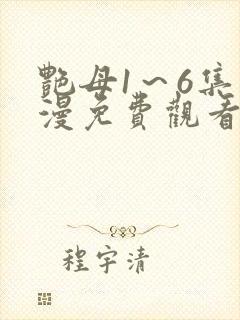 艷母1～6集
漫免費觀看
程宇清